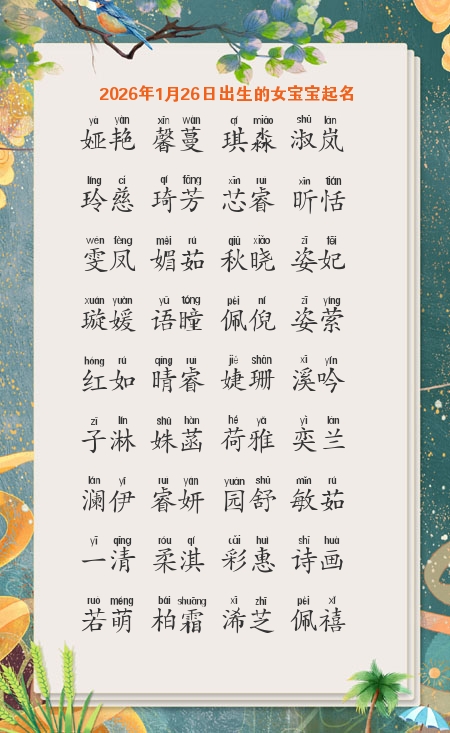 2026年1月26日出生的女宝宝起名
yà yàn xīn wàn qí miǎo shū lán
娅艳 馨蔓 琪淼 淑岚
líng cí qí fāng xīn ruì xīn tián
玲慈 琦芳 芯睿 昕恬
wén fèng mèi rú qiū xiǎo zī fēi
雯凤 媚茹 秋晓 姿妃
xuán yuàn yǔ tóng pèi ní zī yíng
璇媛 语曈 佩倪 姿萦
hóng rú qíng ruì jié shān xī yín
红如 晴睿 婕珊 溪吟
zǐ lín shū hàn hé yǎ yì lán
子淋 姝菡 荷雅 奕兰
lán yī ruì yán yuán shū mǐn rú
澜伊 睿妍 园舒 敏茹
yī qīng róu qí cǎi huì shī huà
一清 柔淇 彩惠 诗画
ruò méng bǎi shuāng xī zhī pèi xǐ
若萌 柏霜 浠芝 佩禧